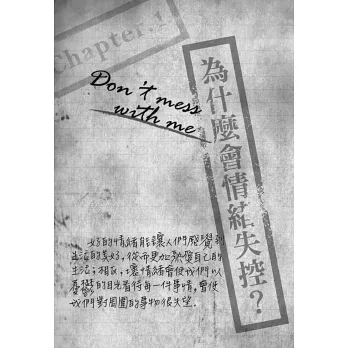 Chapter.1
Don't mess
with me
為什麼會情緒失控？
好的情緒能讓人們感覺到
生活的美好，從而更加熱愛自己的
生活；相反，壞情緒會使我們以
憂鬱的目光看待每一件事情，會使
我們對周圍的事物很失望。